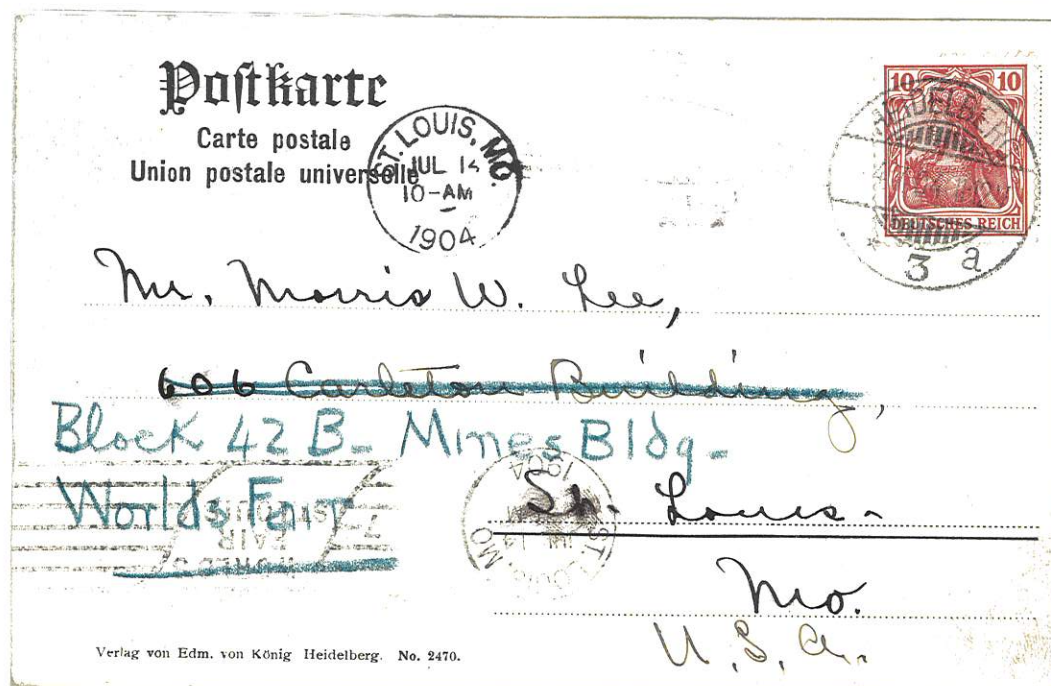 Postkarte
Carte postale
Union postale universelle
ST. LOUIS, MO.
JUL 14
10-AM
1904
10 10
HEIDELBERG
DEUTSCHES REICH
3 a
Mr. Morris W. Lee,
606 Carleton Building,
Block 42 B- Mines Bldg-
Worlds Fair
7
FAIR
WORLD'S
1904
ST. LOUIS, MO
St. Louis-
Mo.
U. S. A.
Verlag von Edm. von König Heidelberg. No. 2470.